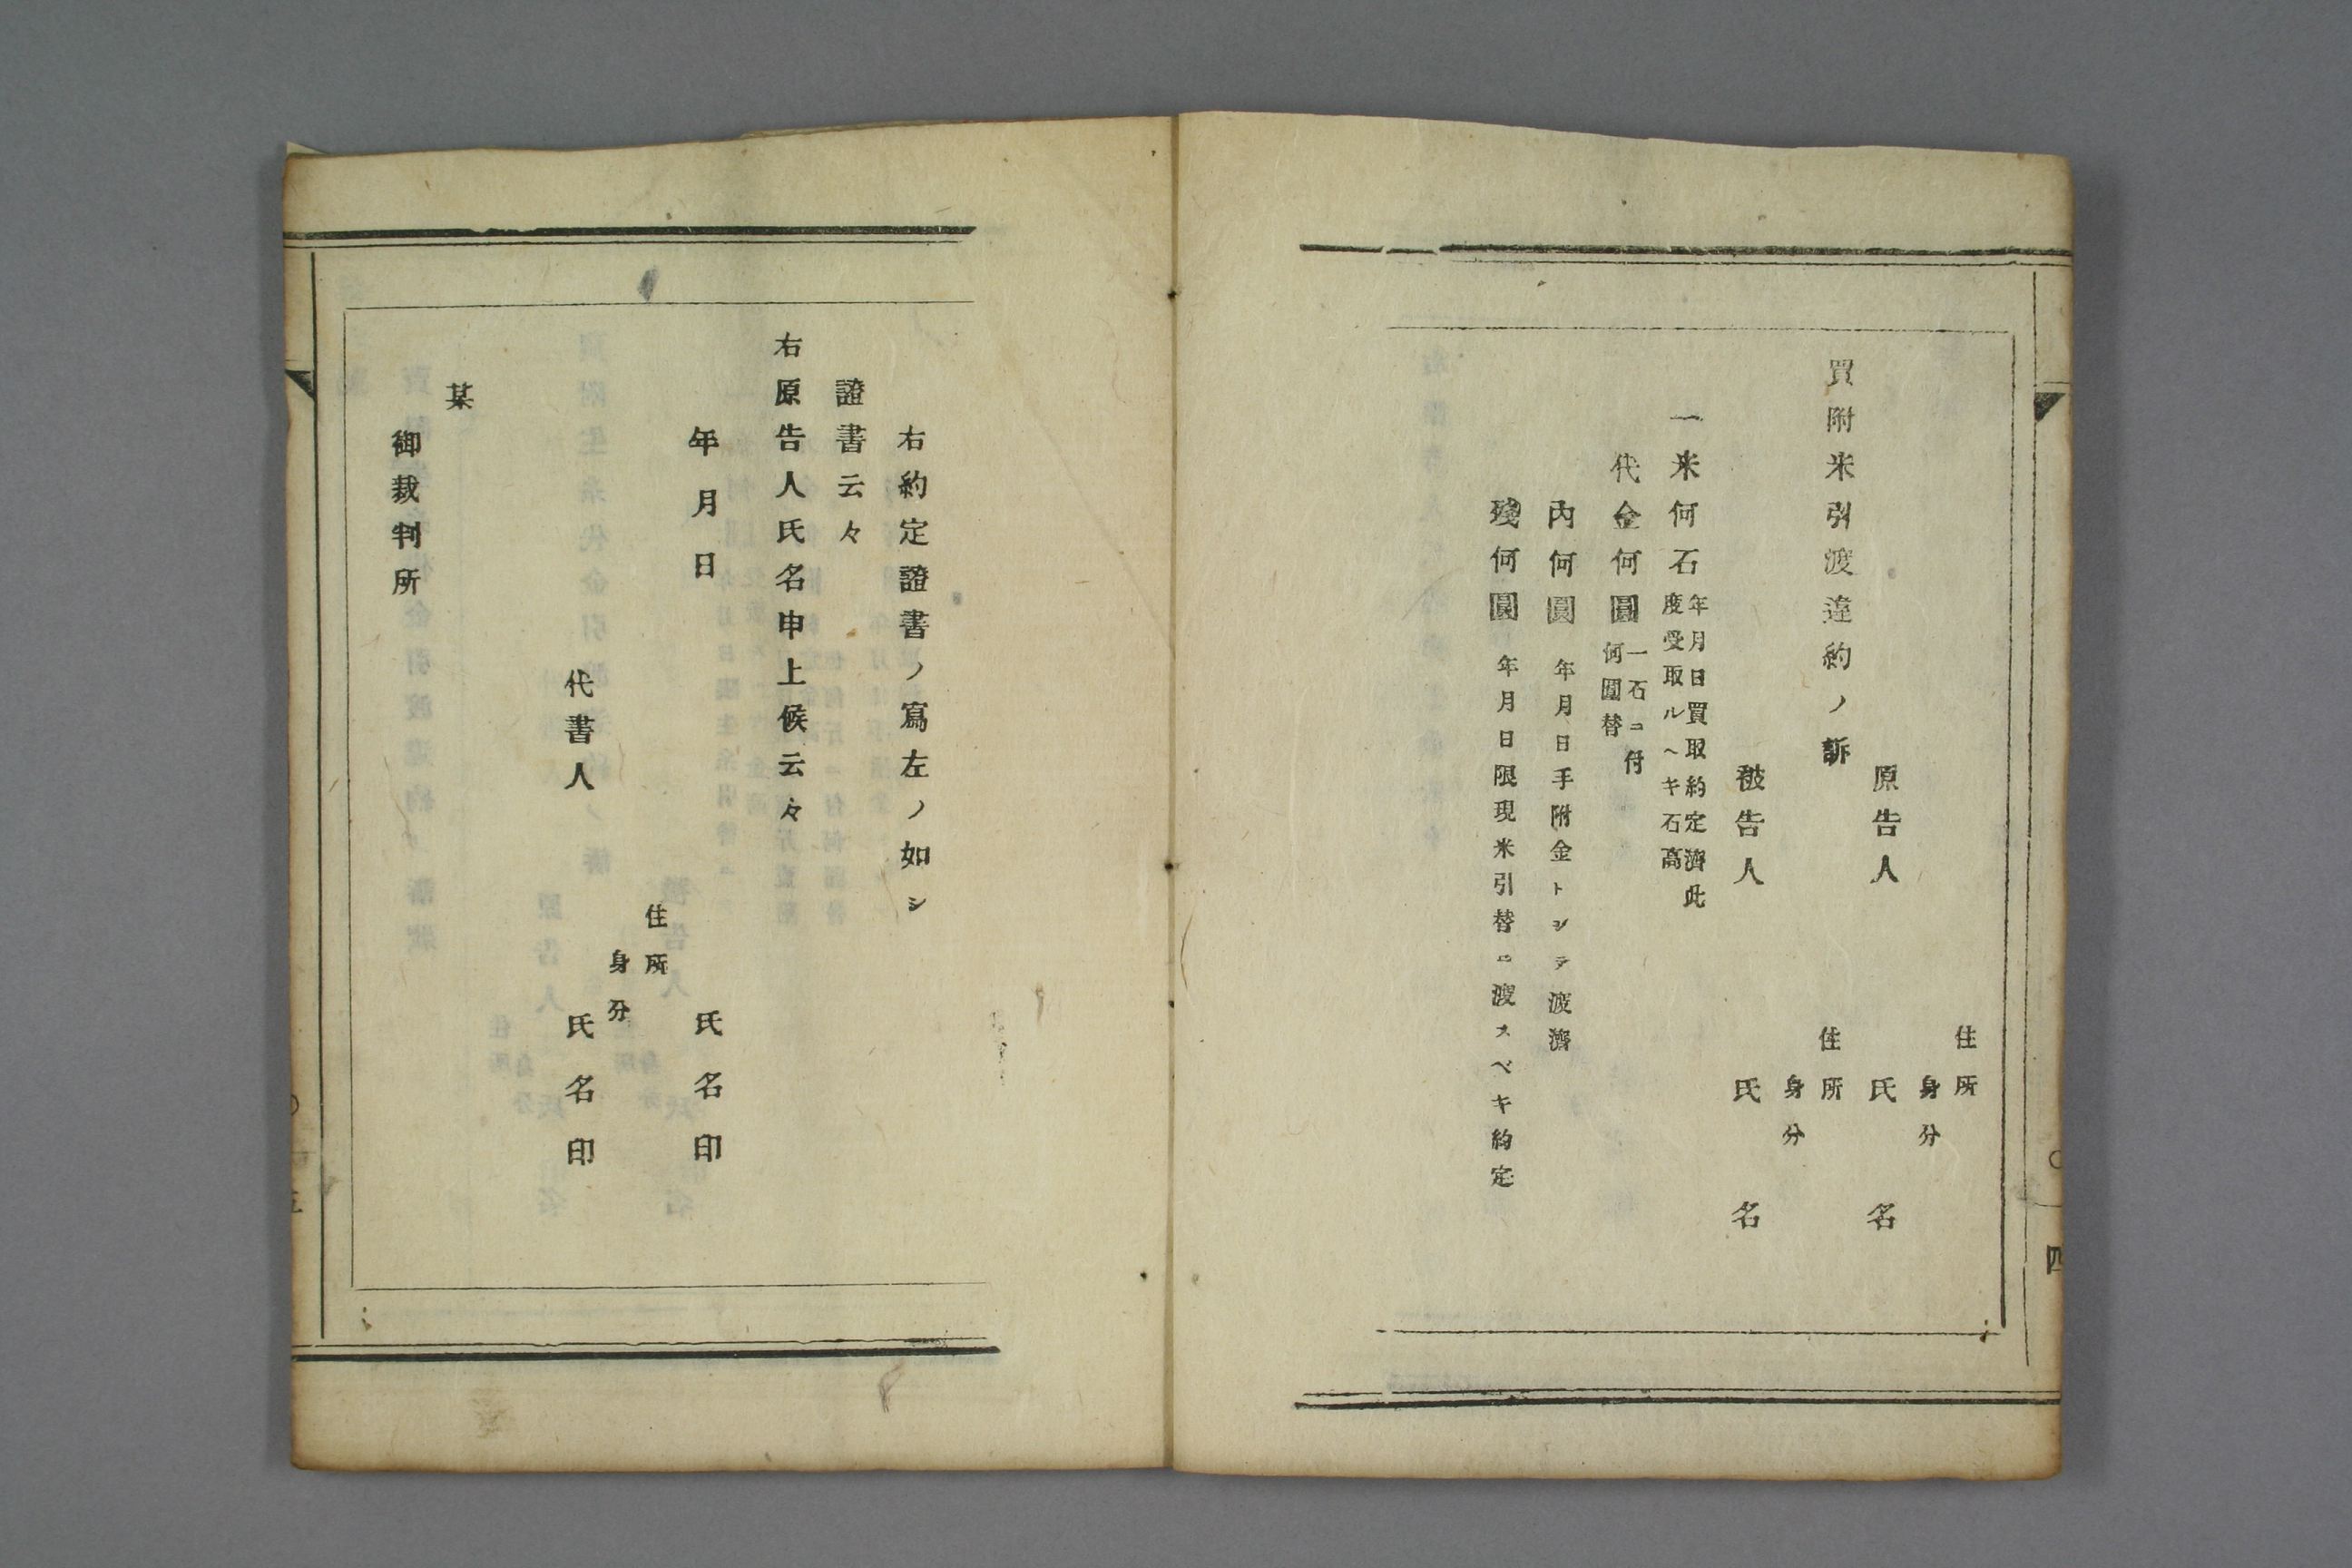 四
住所
身分
原告人　氏名
買附米引渡違約ノ訴
住所
身分
被告人　氏名
一米何石
年月日買取約定濟此
度受取ルヘキ石高
代金何圓
一石ニ付
何圓替
內何圓　年月日手附金トシテ渡濟
殘何圓　年月日限現米引替ニ渡スベキ約定
右約定證書ノ寫左ノ如シ
證書云々
右原告人氏名申上候云々
年月日　氏名印
住所
身分
代書人　氏名印
某
御裁判所